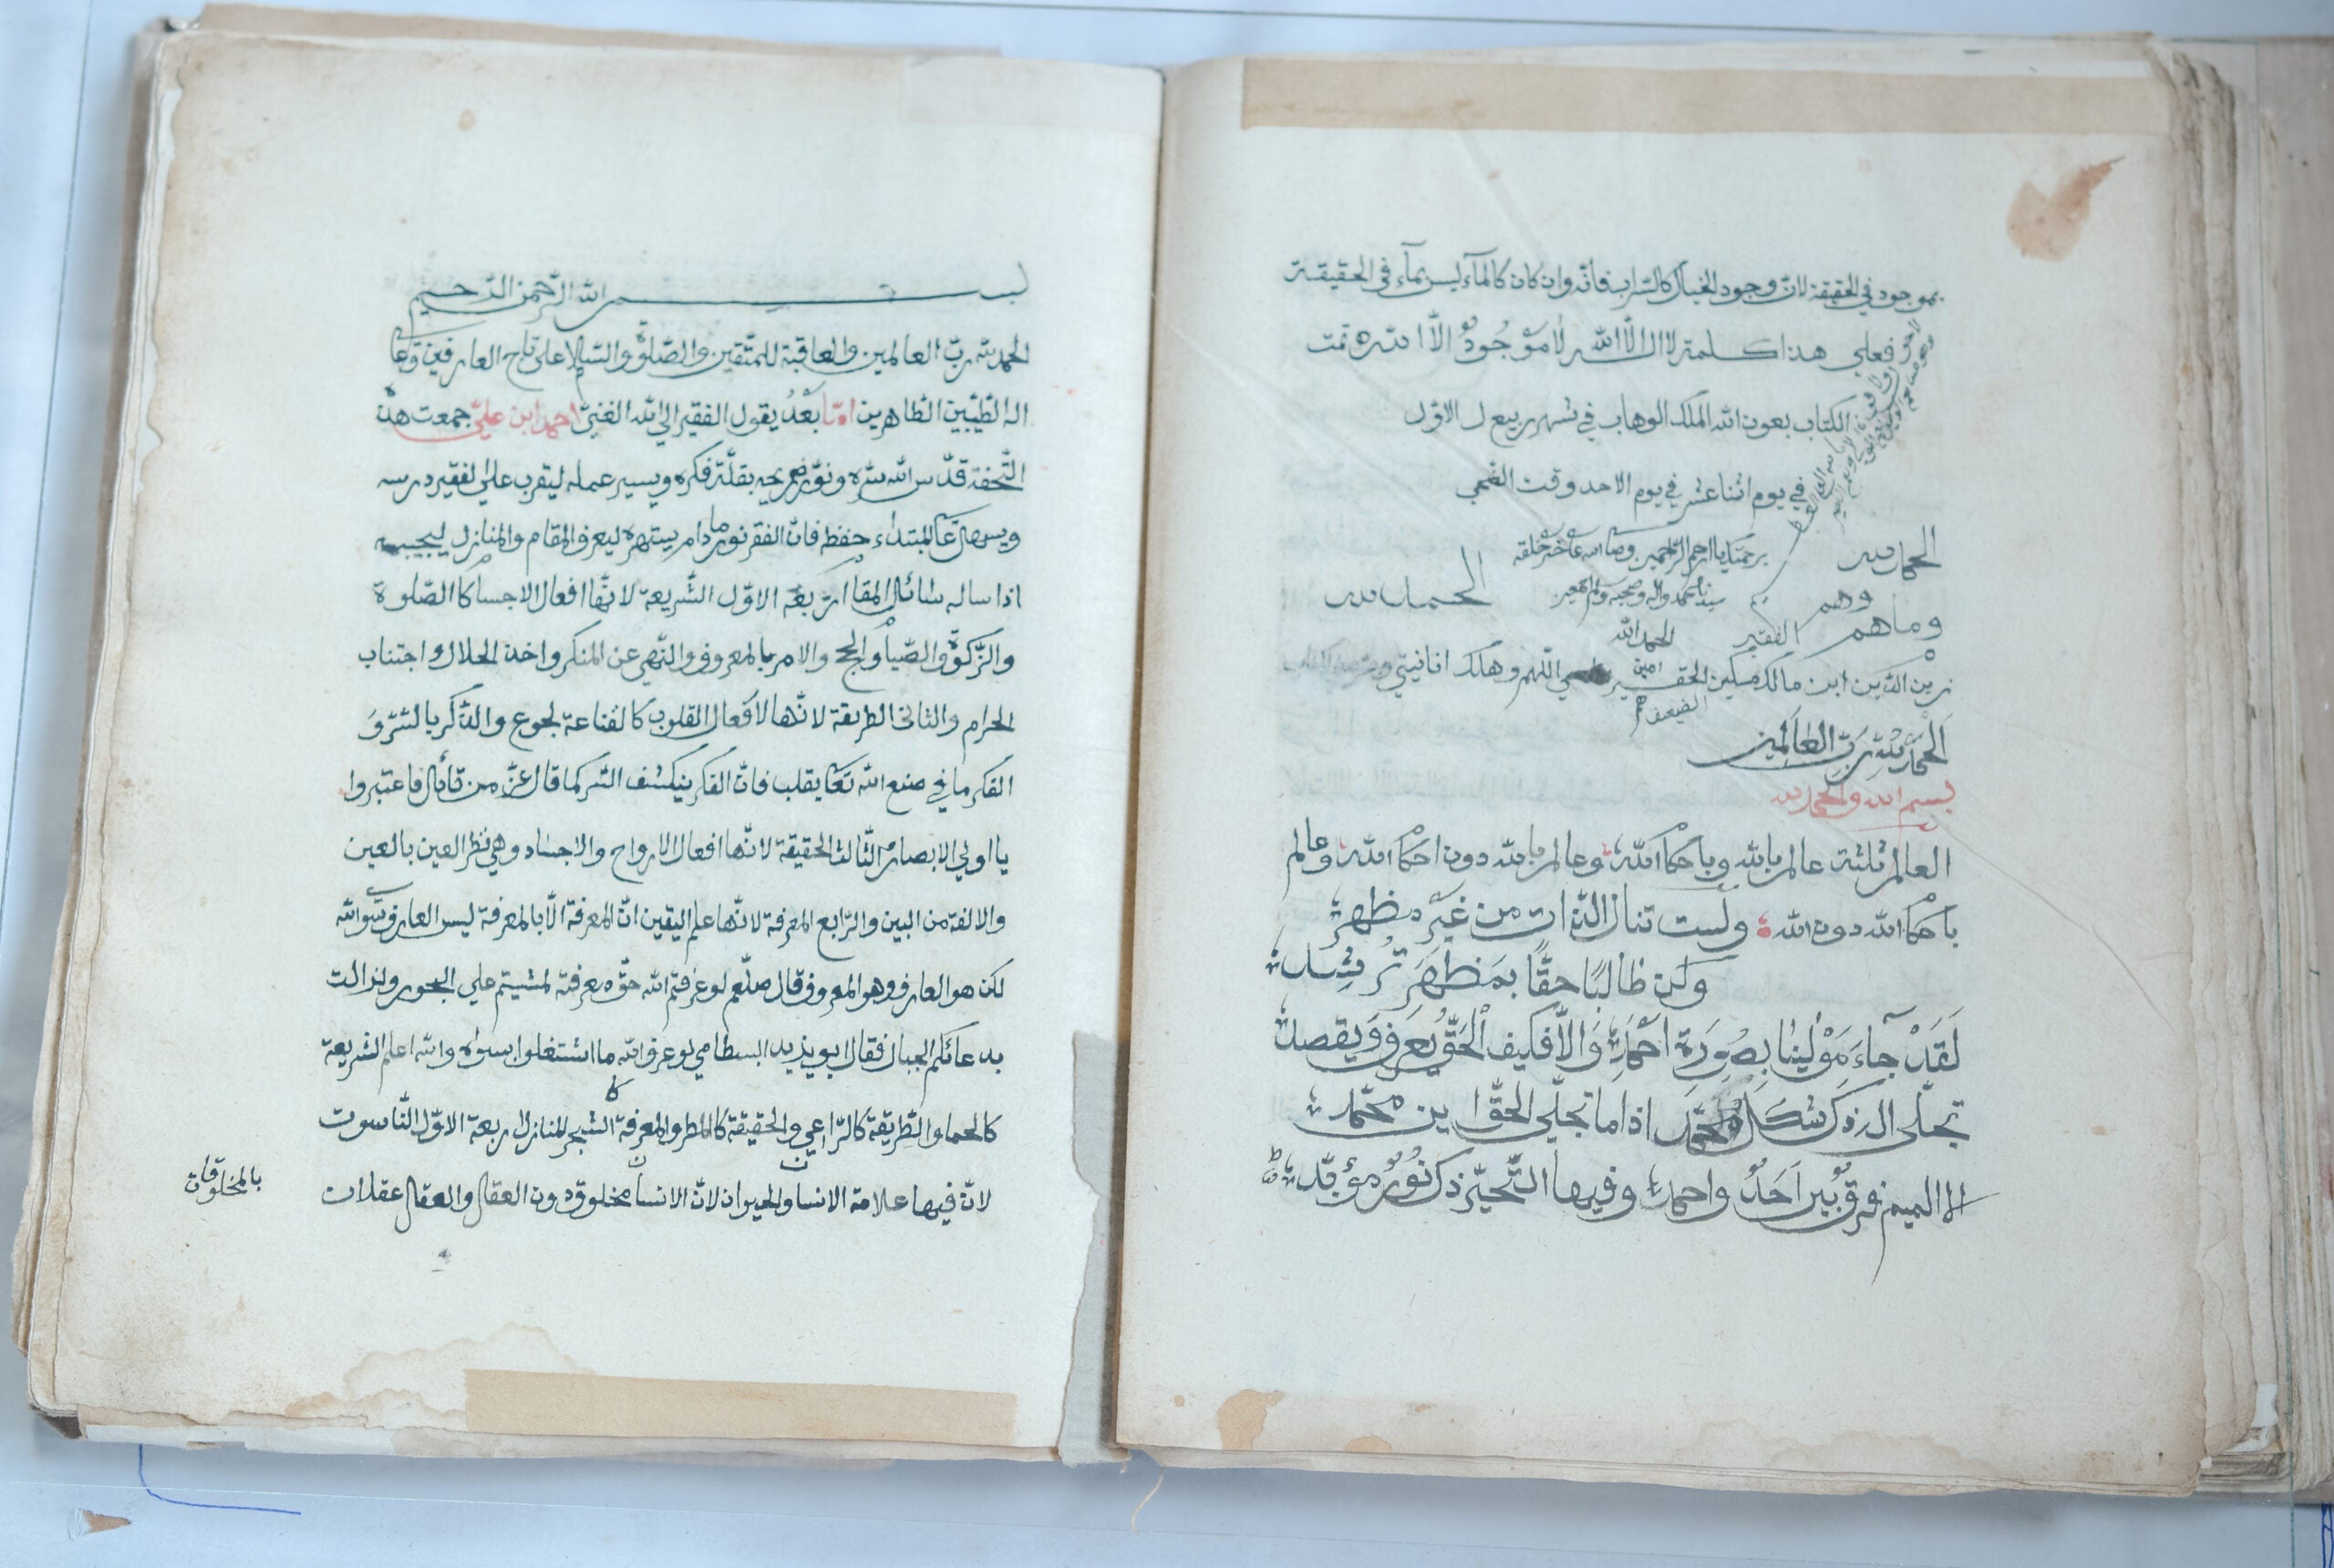 بموجود في الحقيقة لانّ وجود الخيال كالسّراب فانّه وان كان كالمآء ليس بمآء في الحقيقة
فعلي هذا كلمة لا اله الّا الله لا موجودٌ الّا الله تمت
الكتاب بعون الله الملك الوهاب في شهر ربيع ل الاوّل
في يوم اثنا عشر في يوم الاحد وقت الضحي
برحمتك يا ارحم الراحمين وصلى الله على خير خلقه
سيدنا محمد واله وصحبه وسلم اجمعين
الحمد لله
الحمد لله
وهم
وماهم الفقير الحمد الله
زين الدّين ابن مالك مسكين الحقير امين اللّهم وهلك انانيتي
الضعيف
اَلحَمْدُ لِلّهِ رَبِّ العَالَمِين
بسم الله والحمد لله
العالم ثلثة عالم بالله وباحكام الله وعالم بالله دون احكام الله وعالم
باحكام الله دون الله ولست تنال الذات من غير مظهر
ولكن طالبًا حقًّا بمَظهَر تُرشد
لَقَدْ جآءَ مَوْلينا بِصُورَة احمد وَالّا فكيف الحَقّ يُعرَف وَيقصد
تجلّى ال ذكر شكل محمّد اذا ما تجلّي الحقّ ا ين محمّد
الا الميم فرقٌ بين اَحَدٌ واحمد وفيها التّحيّر ذكر نُورٌ مؤبّد
بسم الله الرّحمن الرّحيم
الحمد لله ربّ العالمين والعاقبة للمتّقين والصّلوة والسّلام على تاج العارفين وعلى
اله الطّيّبين الطّاهرين امّا بَعْدُ يقول الفقير الي الله الغنيّ احمد ابن عليّ جمعت هذه
التّحفة قدّس الله سرّه ونوّر ضريحه بقلّة فكره ويسير عمله ليقرب علي الفقير درسه
ويسهل على المبتداء حفظه فانّ الفقر نور ما دام يستهره ليعرف المقام والمنازل ليجيبه
اذا ساله سائل المقام اربعة الاوّل الشّريعة لانّها افعال الاجسام كالصّلوة
والزّكوة والصّيام والحج والامر بالمعروف والنّهي عن المنكر واخذ الحلال واجتناب
الحرام والثاني الطريقة لانّها لافعال القلوب كالقناعة لجوع والذّكر بالسّرّ وَ
الفكر ما في صنع الله تعالى بقلب فانّ الفكر ينكشف السّر كما قال عزّ من قآئل فاعتبروا
يا اولي الابصار الثّالث الحقيقة لانّها افعال الارواح والاجساد وهي نظر العين بالعين
والالفة من البين والرّابع المعرفة لانّها علم اليقين انّ المعرفة الّا بالمعرفة ليس العارف سوالله
لكن هو العارف وهو المعروف وقال صلّعم لو عرفتم الله حقّ معرفته لمشيتم علي البحور ولزالت
بدعائكم الجبال فقال ابو يذيد البسطامي لو عرفوا الله ما اشتغلوا بسواه والله اعلم الشّريعة
كالحما والطّريقة كالرّاعي والحقيقة كالمطر والمعرفة كا الشجر المنازل اربعة الاوّل النّاسوت
لانّ فيها علامة الانسان والحيوان لانّ الانسان مخلوق دون العقال والعقال عقلان
بالمخلوقات